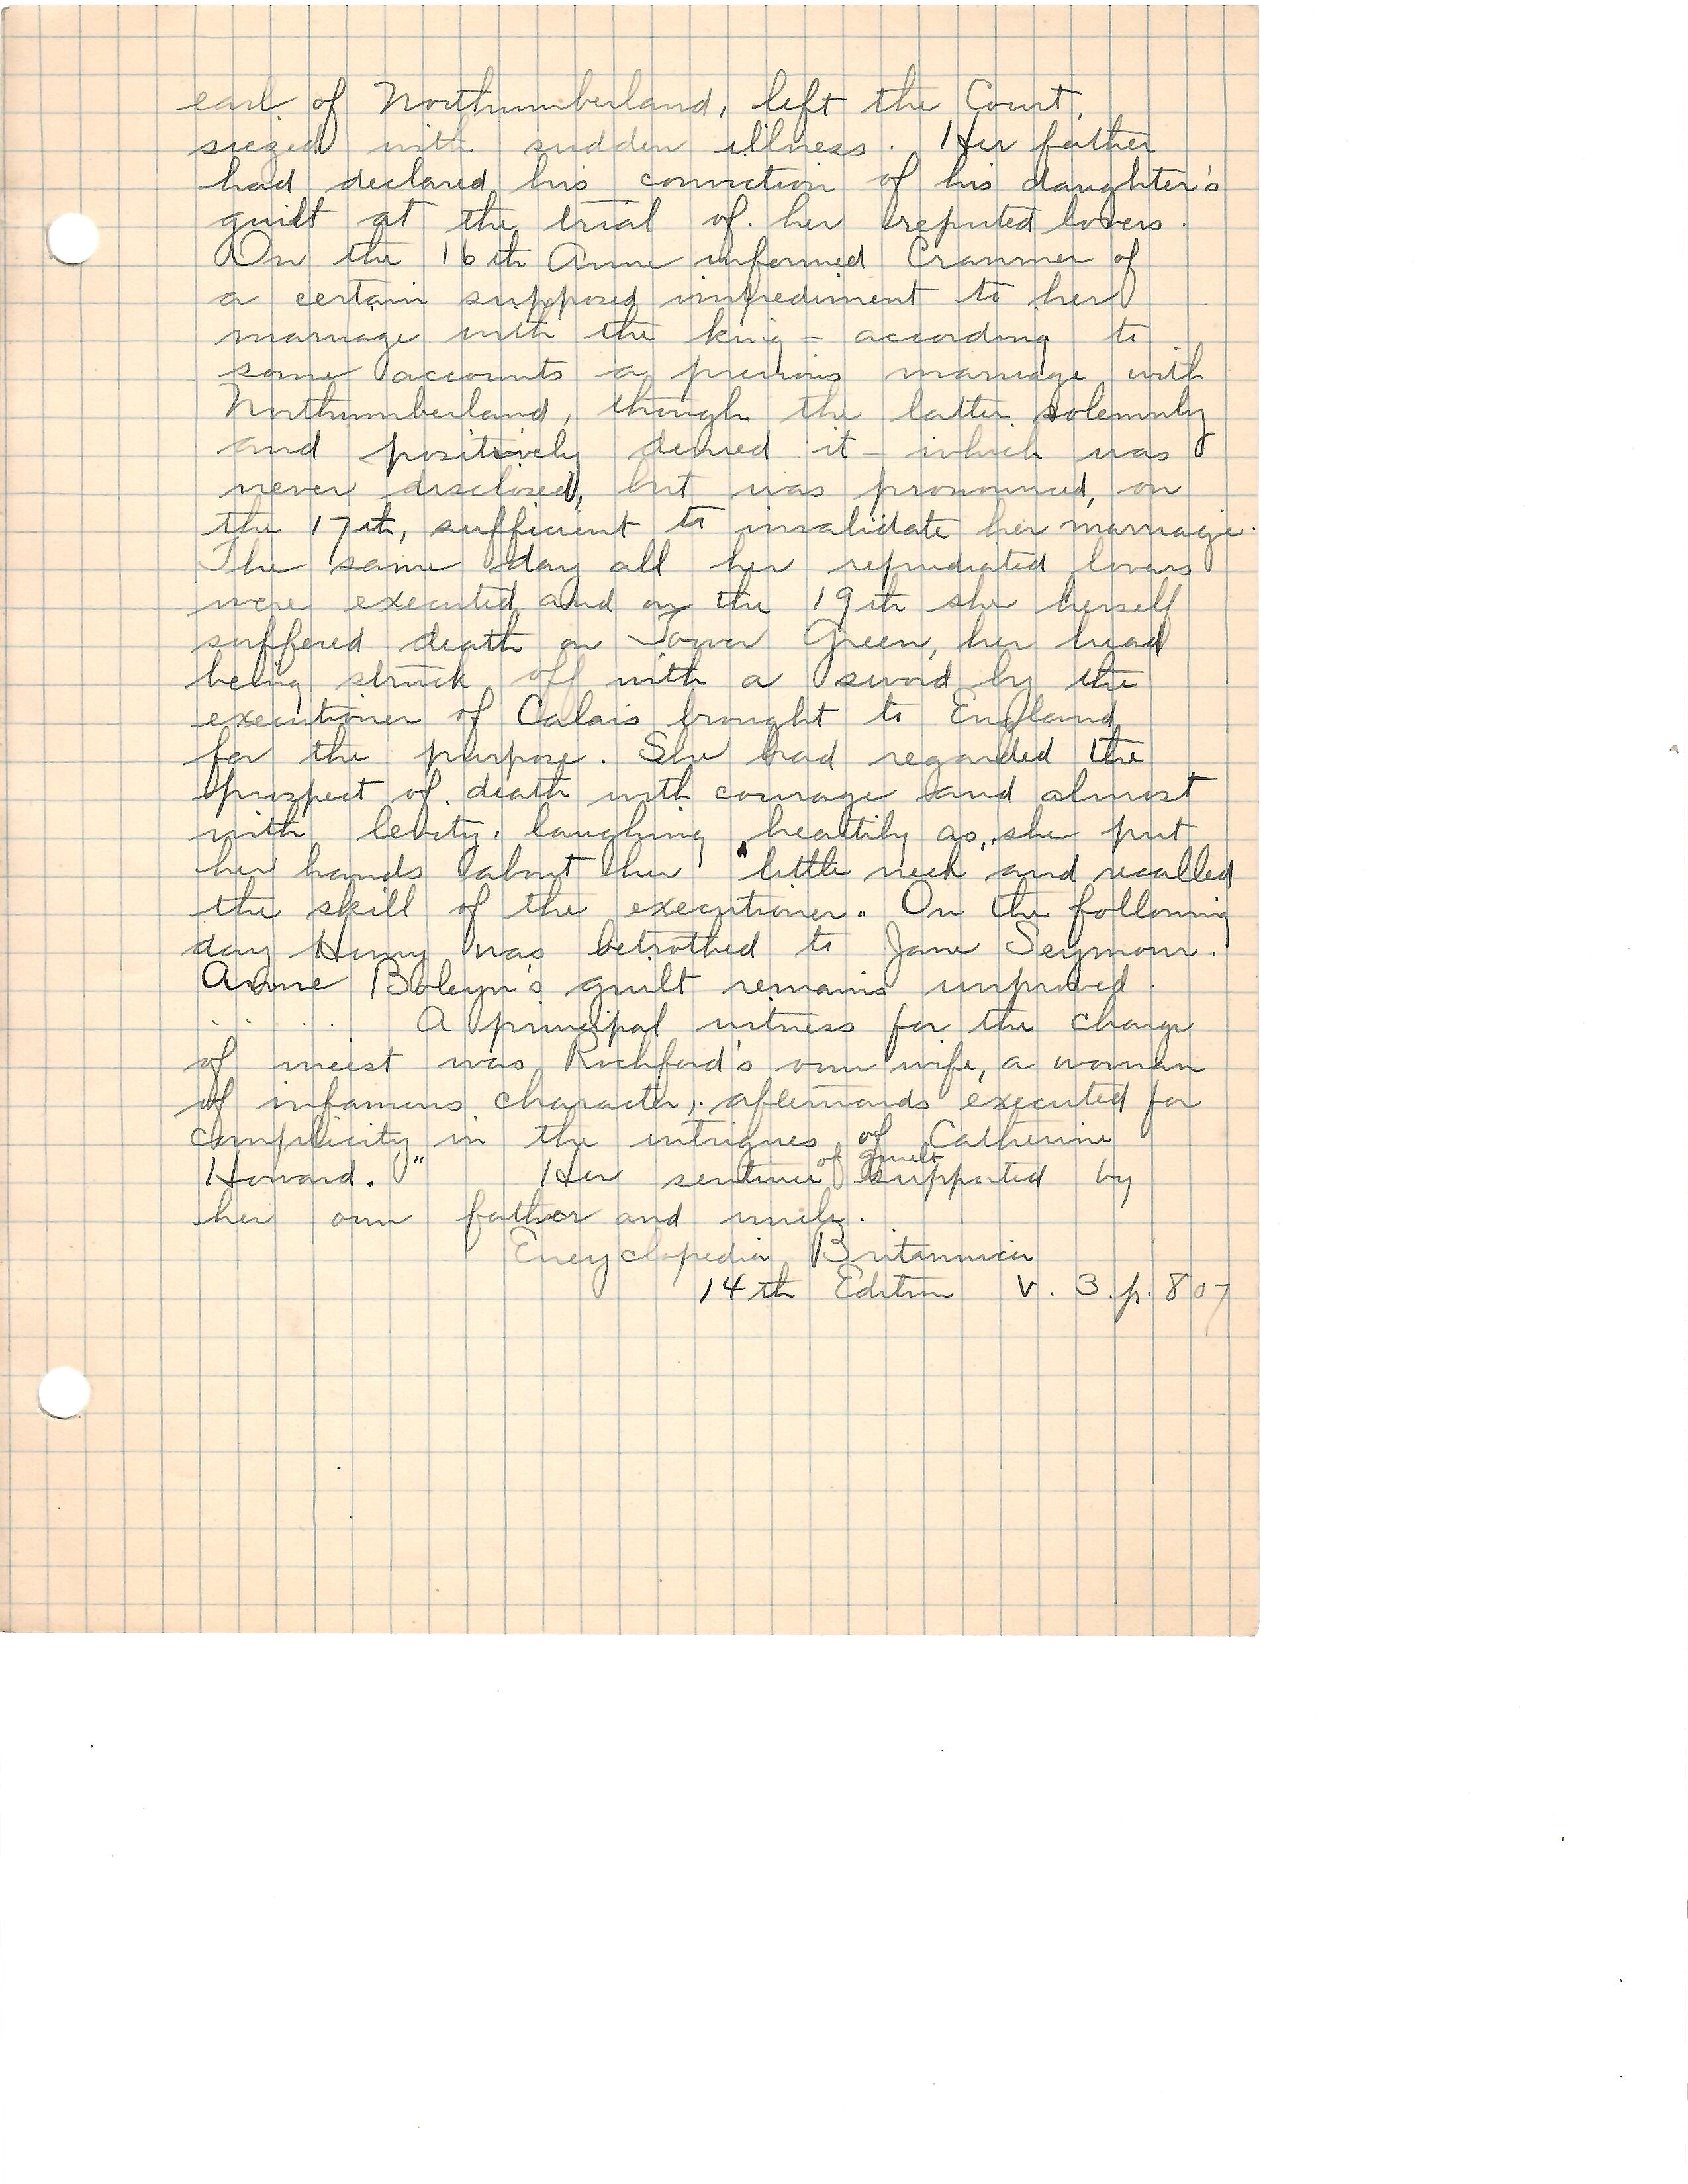 earl of Northumberland, left the Court,
siezed with sudden illness. Her father
had declared his conviction of his daughter's
guilt at the trial of her reputed lovers.
On the 16th Anne informed Cranmer of
a certain supposed impediment to her
marriage with the king - according to
some accounts a previous marriage with
Northumberland, though the latter solemnly
and positively denied it - which was
never disclosed, but was pronounced, on
the 17th, sufficient to invalidate her marriage.
The same day all her repudiated lovers
were executed and on the 19th she herself
suffered death on Tower Green, her head
being struck off with a sword by the
executioner of Calais brought to England
for the purpose. She had regarded the
prospect of death with courage and almost
with levity, laughing heartily as she put
her hands about her "little neck" and recalled
the skill of the executioner. On the following
day Henry was betrothed to Jane Seymour.
Anne Boleyn's guilt remains unproved.
. . . . A principal witness for the charge
of incest was Rochford's own wife, a woman
of infamous character, afterwards executed for
complicity in the intrigues of Catherine
Howard." Her sentence of guilt supported by
her own father and uncle.
Encyclopedia Britannica
14th Edition V. 3. p. 807